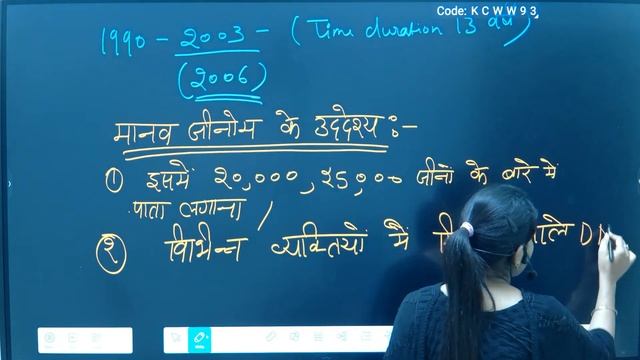 Code: K C W W 9 3
1990 - 2003 - ( Time duration 13
(2006)
मानव जीनोम के उद्देश्य :-
① इसमें २०,000, २5,000 जीनों के बारे में
पाता लगाना /
② विभिन्न व्यक्तियों में